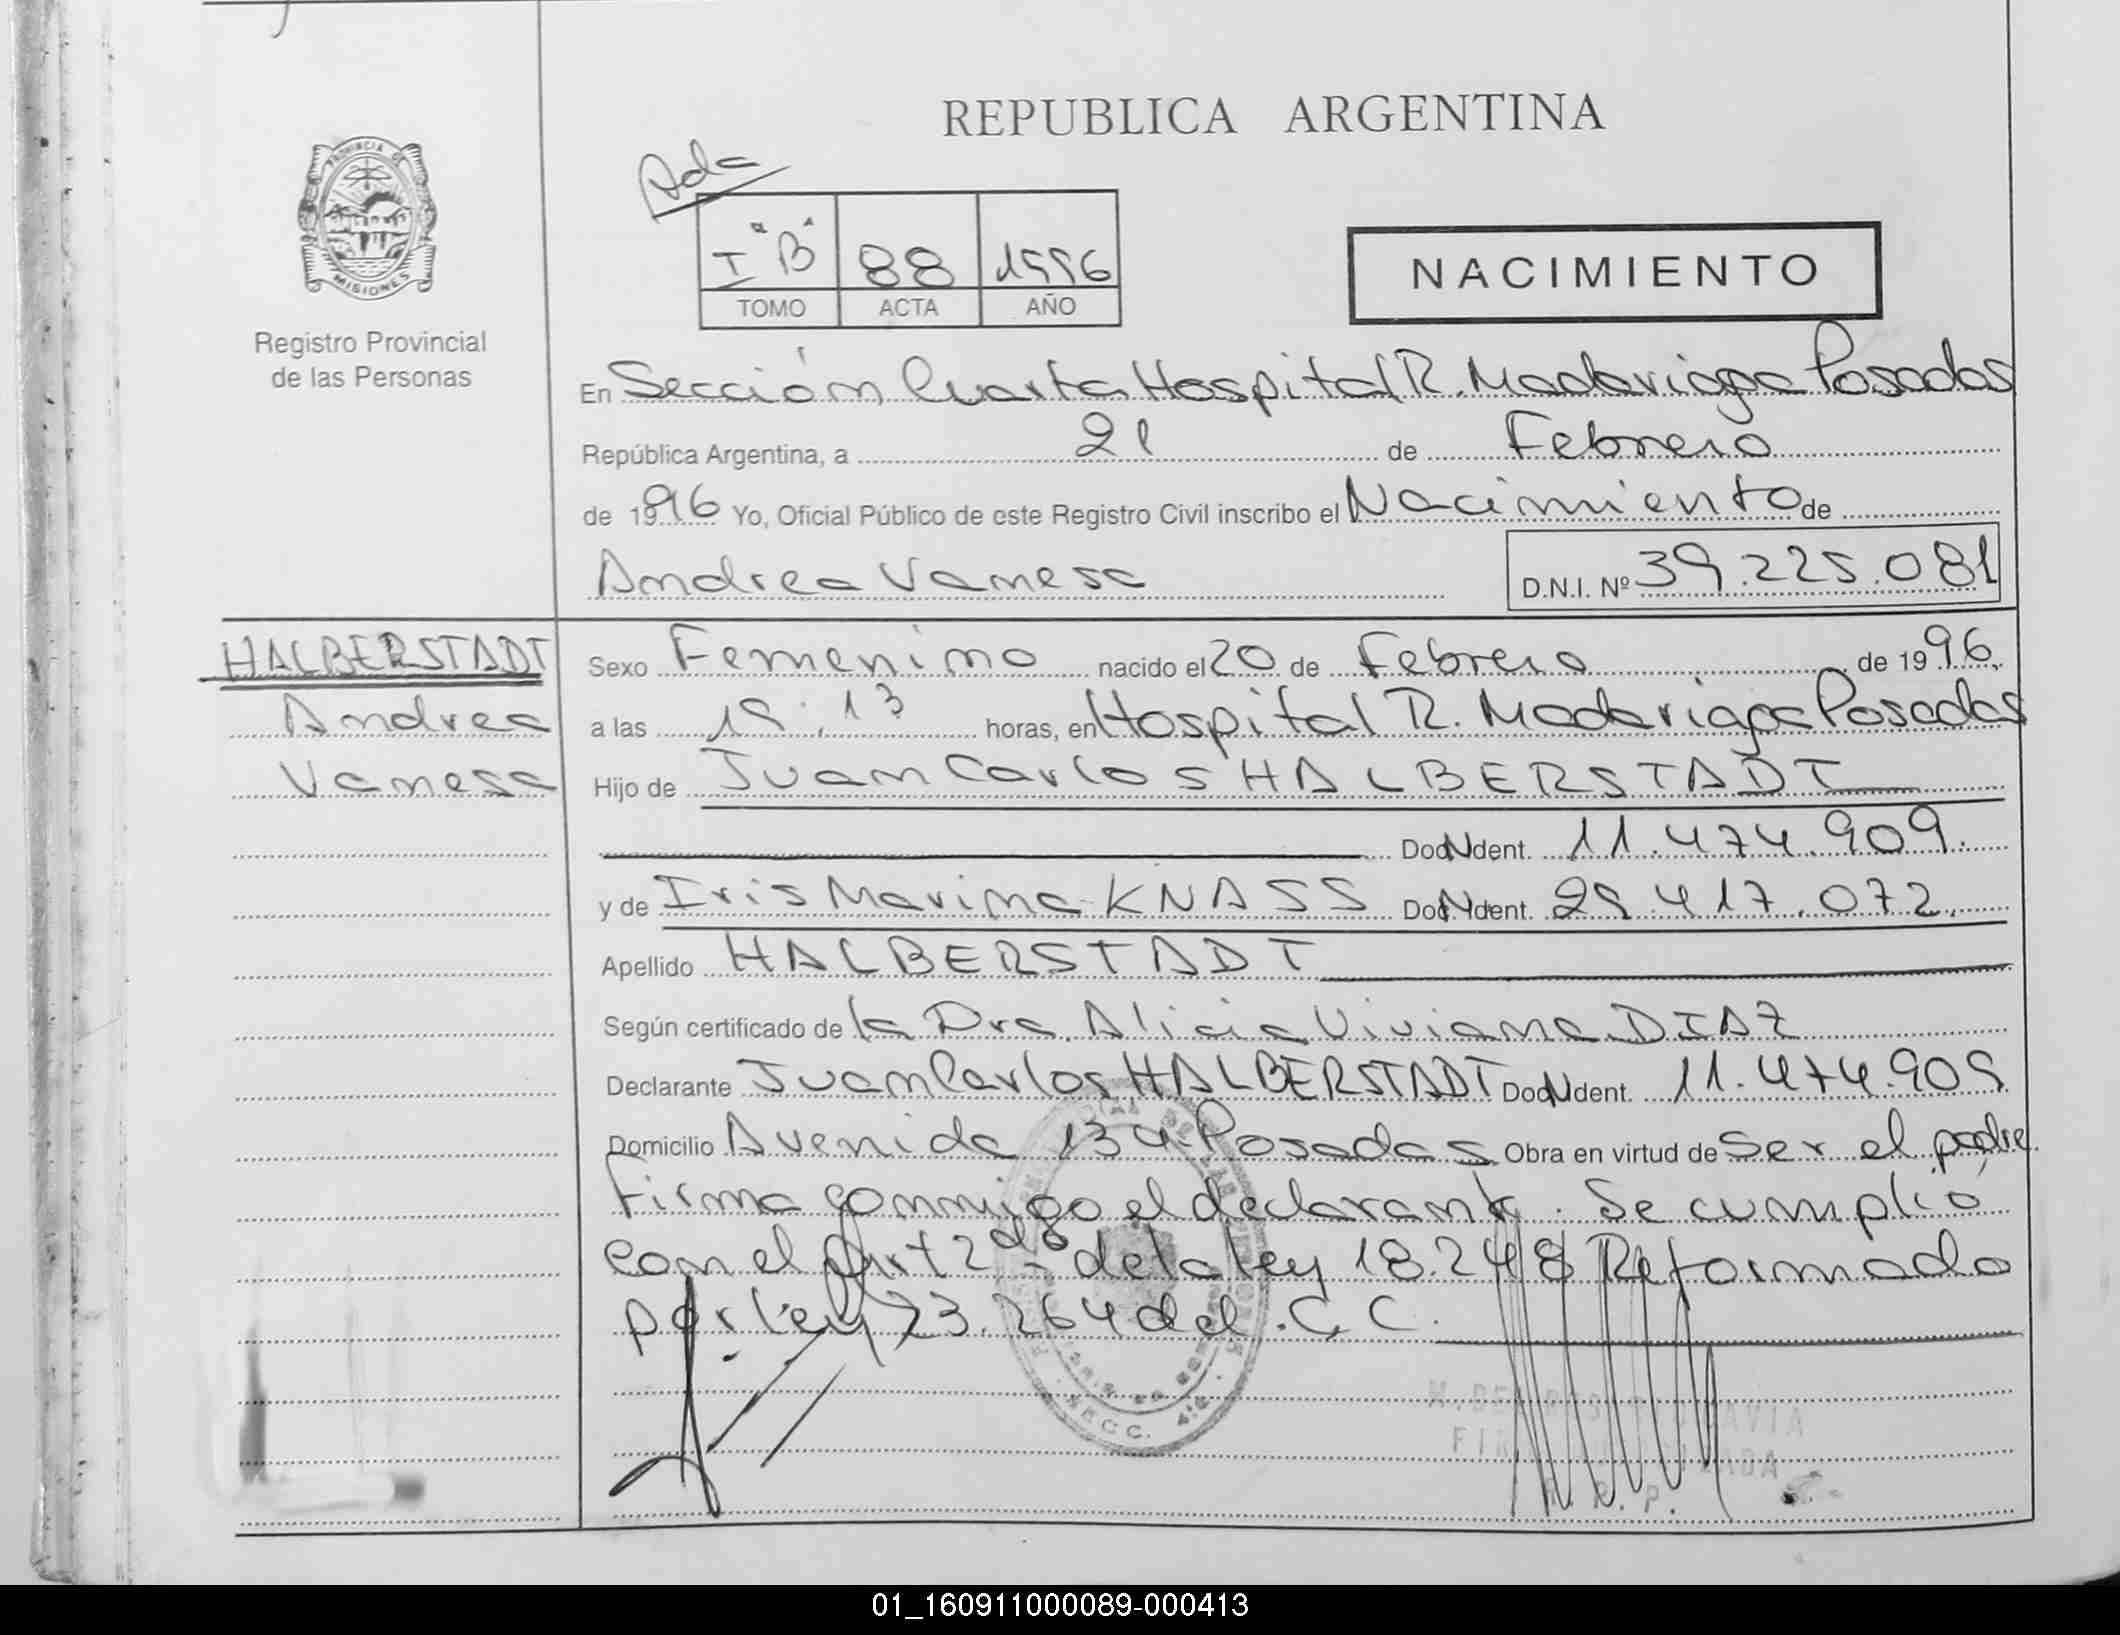 REPUBLICA ARGENTINA
Ada
PROVINCIA DE
MISIONES
Registro Provincial
de las Personas
I "B" 88 1996
TOMO ACTA AÑO
NACIMIENTO
En Sección Cuarta Hospital R. Madariaga Posadas
República Argentina, a 21 de Febrero
de 1996 Yo, Oficial Público de este Registro Civil inscribo el Nacimiento de
Andrea Vanesa D.N.I. Nº 39.225.081
HALBERSTADT
Andrea
Vanesa
Sexo Femenino nacido el 20 de Febrero de 1996.
a las 19:13 horas, en Hospital R. Madariaga Posadas
Hijo de Juan Carlos HALBERSTADT
Doc N Ident. 11.474.909.
y de Iris Marina KNASS Doc N Ident. 29.417.072.
Apellido HALBERSTADT
Según certificado de la Dra. Alicia Viviana DIAZ
Declarante Juan Carlos HALBERSTADT Doc N Ident. 11.474.909
Domicilio Avenida 134 Posadas Obra en virtud de ser el padre
Firma conmigo el declarante. Se cumplió
con el Art 2do - de la ley 18.248 Reformado
por ley 23.264 del C.C.
01_160911000089-000413